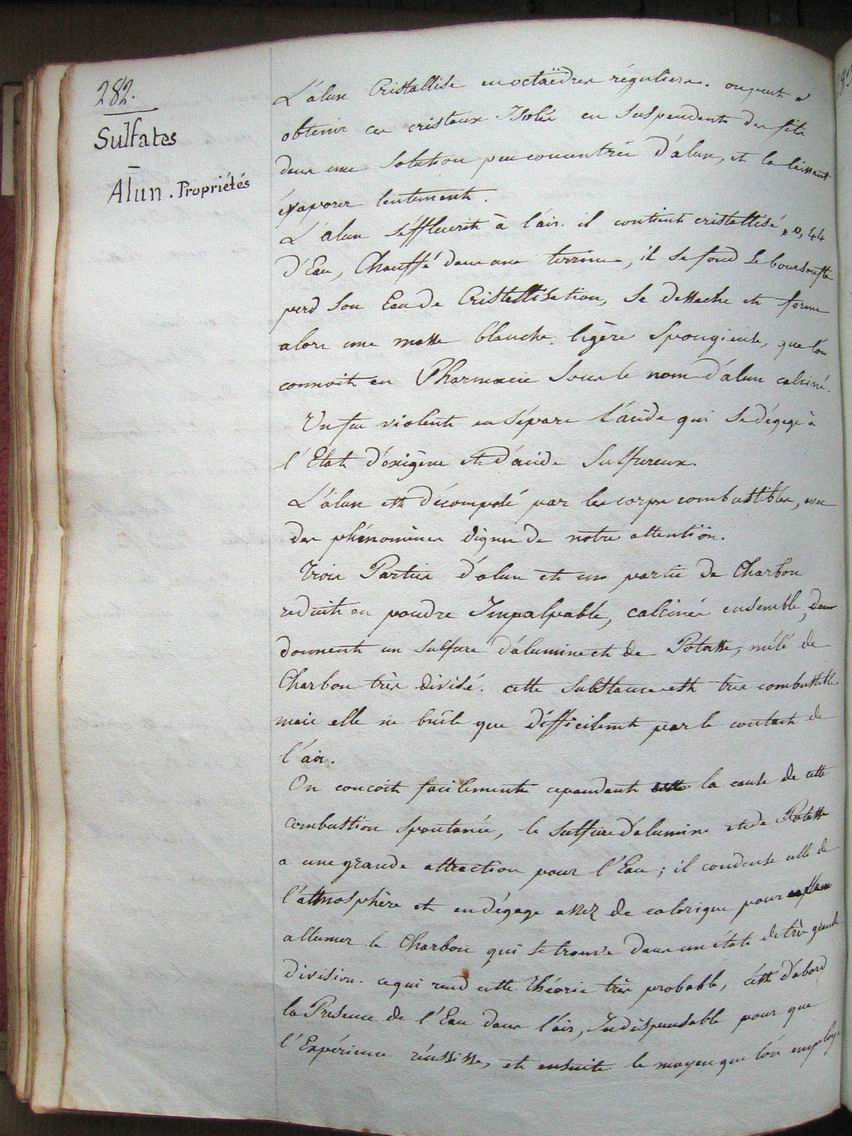 282.
Sulfates
Alun. Propriétés
L'alun Cristallise en octaëdres réguliers. on peut
obtenir ces cristaux Isolés en suspendents des fils
dans une solution peu concentrée d'alun, et la laissant
évaporer lentement.
L'alun s'effleurit à l'air. il contient cristallisé, 0,44
D'Eau, Chauffé dans une terrine, il se fond se boursouffle
perd son Eau de Cristallisation, se dessèche et forme
alors une masse blanche, légère spongieuse, que l'on
connoit en Pharmacie sous le nom d'alun calciné.
Un feu violent en sépare l'acide qui se dégage à
l'Etat d'oxigène et d'acide sulfureux.
L'alun est décomposé par les corps combustibles, avec
des phénomènes dignes de notre attention.
Trois Parties d'alun et un partie de Charbon
reduits en poudre Impalpable, calcinés ensemble,
donnent un sulfure d'alumine et de Potasse, mêlé de
Charbon très divisé. cette substance est très combustible
mais elle ne brûle que difficilement par le contact de
l'air.
On concoit facilement cependant la cause de cette
combustion spontanée, le sulfure d'alumine et de Potasse
a une grande attraction pour l'Eau; il condense celle de
l'atmosphère et en dégage assez de calorique pour
allumer le Charbon qui se trouve dans un état de très grande
division. ce qui rend cette théorie très probable, c'est d'abord
la Présence de l'Eau dans l'air, Indispensable pour que
l'Expérience réussisse, et ensuite le moyen que l'on employe